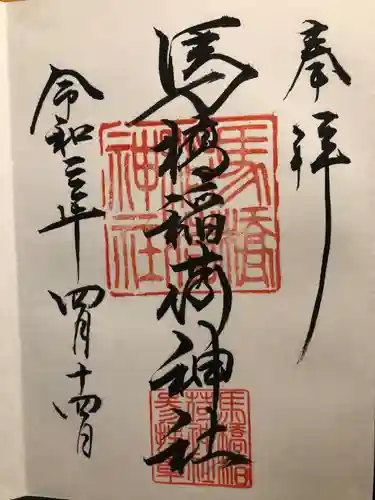 奉拝
馬橋稲荷神社
令和三年
四月十四日
馬橋稲荷神社